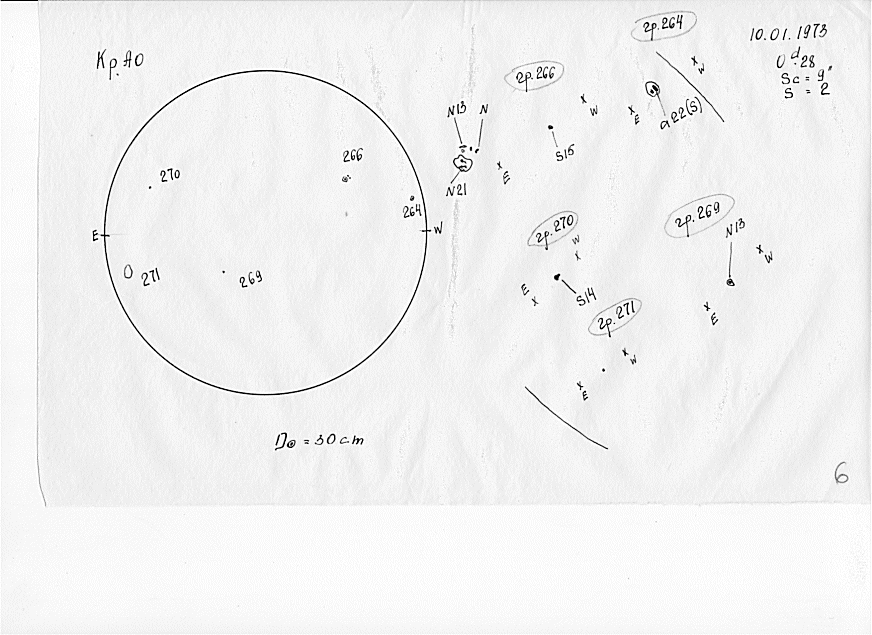 Кр.АО
10.01.1973
0ᵈ.28
Sc = 9"
S = 2
гр.264
W
E
α22(S)
гр.266
N13 N
N21
W
E
S15
270
266
264
E
W
271
269
гр.270
W
E
S14
гр.269
N13
W
E
гр.271
W
E
D⊙ = 30 cm
6